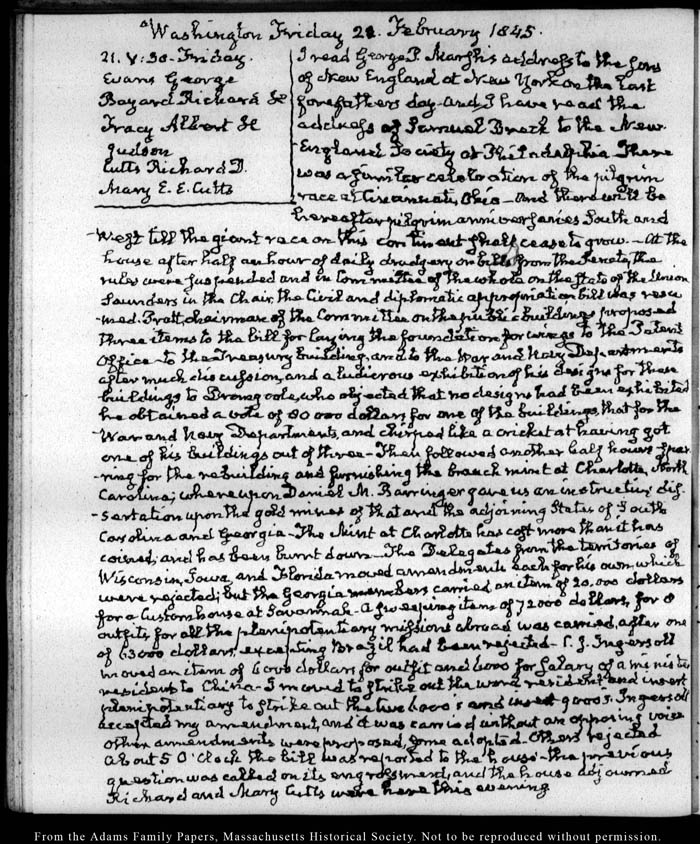 Washington Friday 21. February 1845.
21. V:30. Friday.
Evans George
Bayard Richard H
Tracy Albert H
Judson
Cutts Richard D.
Mary E. E. Cutts
I read George P. Marsh's address to the Sons
of New England at New York on the last
forefathers day and I have read the
address of Samuel Breck to the New-
England Society at Philadelphia There
was a similar celebration of the pilgrim
race at Cincinnati, Ohio – And there will be
hereafter pilgrim anniversaries South and
West till the giant race on this continent shall cease to grow. – At the
house after half an hour of daily drudgery on bills from the Senate, the
rules were suspended and in Committee of the whole on the state of the Union
Saunders in the Chair, the Civil and diplomatic appropriation bill was resu
med. Pratt, chairman of the Committee on the public buildings proposed
three items to the bill for laying the foundation for wings to the Patent
Office – to the Treasury building, and to the War and Navy Departments
after much discussion, and a ludicrous exhibition of his designs for these
buildings to Dromgoole, who objected that no designs had been exhibited
he obtained a vote of 80 000 dollars for one of the buildings, that for the
War and Navy Departments, and chirped like a cricket at having got
one of his buildings out of three – Then followed another half hours spar
ring for the rebuilding and furnishing the branch mint at Charlotte, North
Carolina; whereupon Daniel M. Barringer gave us an instructive dis-
sertation upon the gold mines of that and the adjoining States of South
Carolina and Georgia – The Mint at Charlotte has cost more than it has
coined, and has been burnt down – The Delegates from the territories of
Wisconsin, Iowa, and Florida moved amendments each for his own, which
were rejected; but the Georgia members carried an item of 20,000 dollars
for a Custom house at Savannah – A sweeping item of 72000 dollars, for 8
outfits for all the plenipotentiary missions abroad was carried, after one
of 63000 dollars, excepting Brazil had been rejected – C. J. Ingersoll
moved an item of 6000 dollars for outfit and 6000 for Salary of a minister
resident to China – I moved to strike out the word resident and insert
plenipotentiary to strike out the two 6000s and insert 9000s. Ingersoll
accepted my amendment, and it was carried without an opposing voice
other amendments were proposed, some adopted – Others rejected
About 5 O'Clock the bill was reported to the house – the previous
question was called on its engrossment, and the house adjourned
Richard and Mary Cutts were here this evening
From the Adams Family Papers, Massachusetts Historical Society. Not to be reproduced without permission.